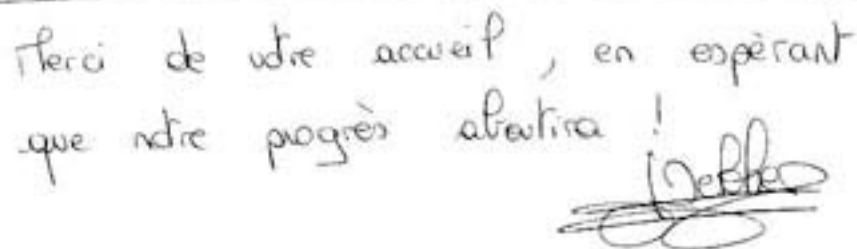 Merci de votre accueil, en espèrant
que notre progrès aboutira !